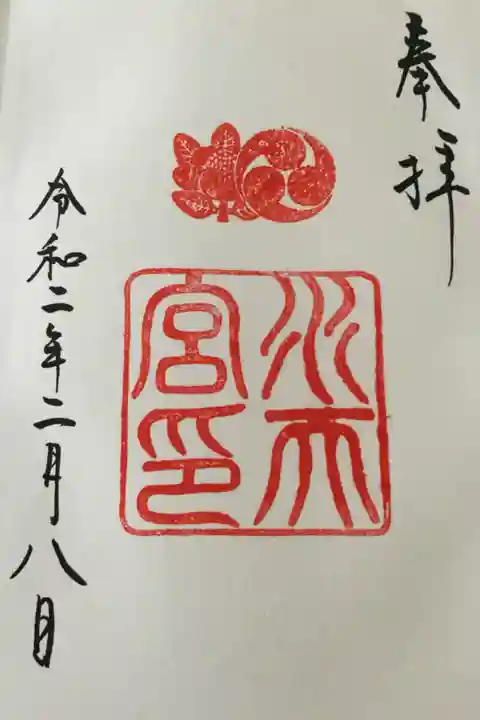 奉拝
水天
宮印
令和二年二月八日